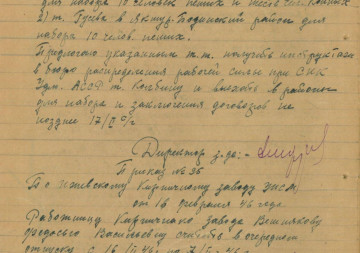 для набора 10 человек пеших и
2) т. Гусева в Якшур-Бодинский район для
набора 10 челов. пеших.
Предлагаю указанным т.т. получить инструктаж
в бюро распределения рабочей силы при СНК
Удм. АССР т. и выехать в районы
для набора и заключения договоров не
позднее 17/II с/г
Директор з-да: -
Приказ № 36
По Ижевскому Кирпичному заводу
от 16 февраля 46 года
Работницу Кирпичного завода Вешнякову
Федосью Васильевну считать в очередном
отпуску с 16/II 46г. по 7/ 46г.